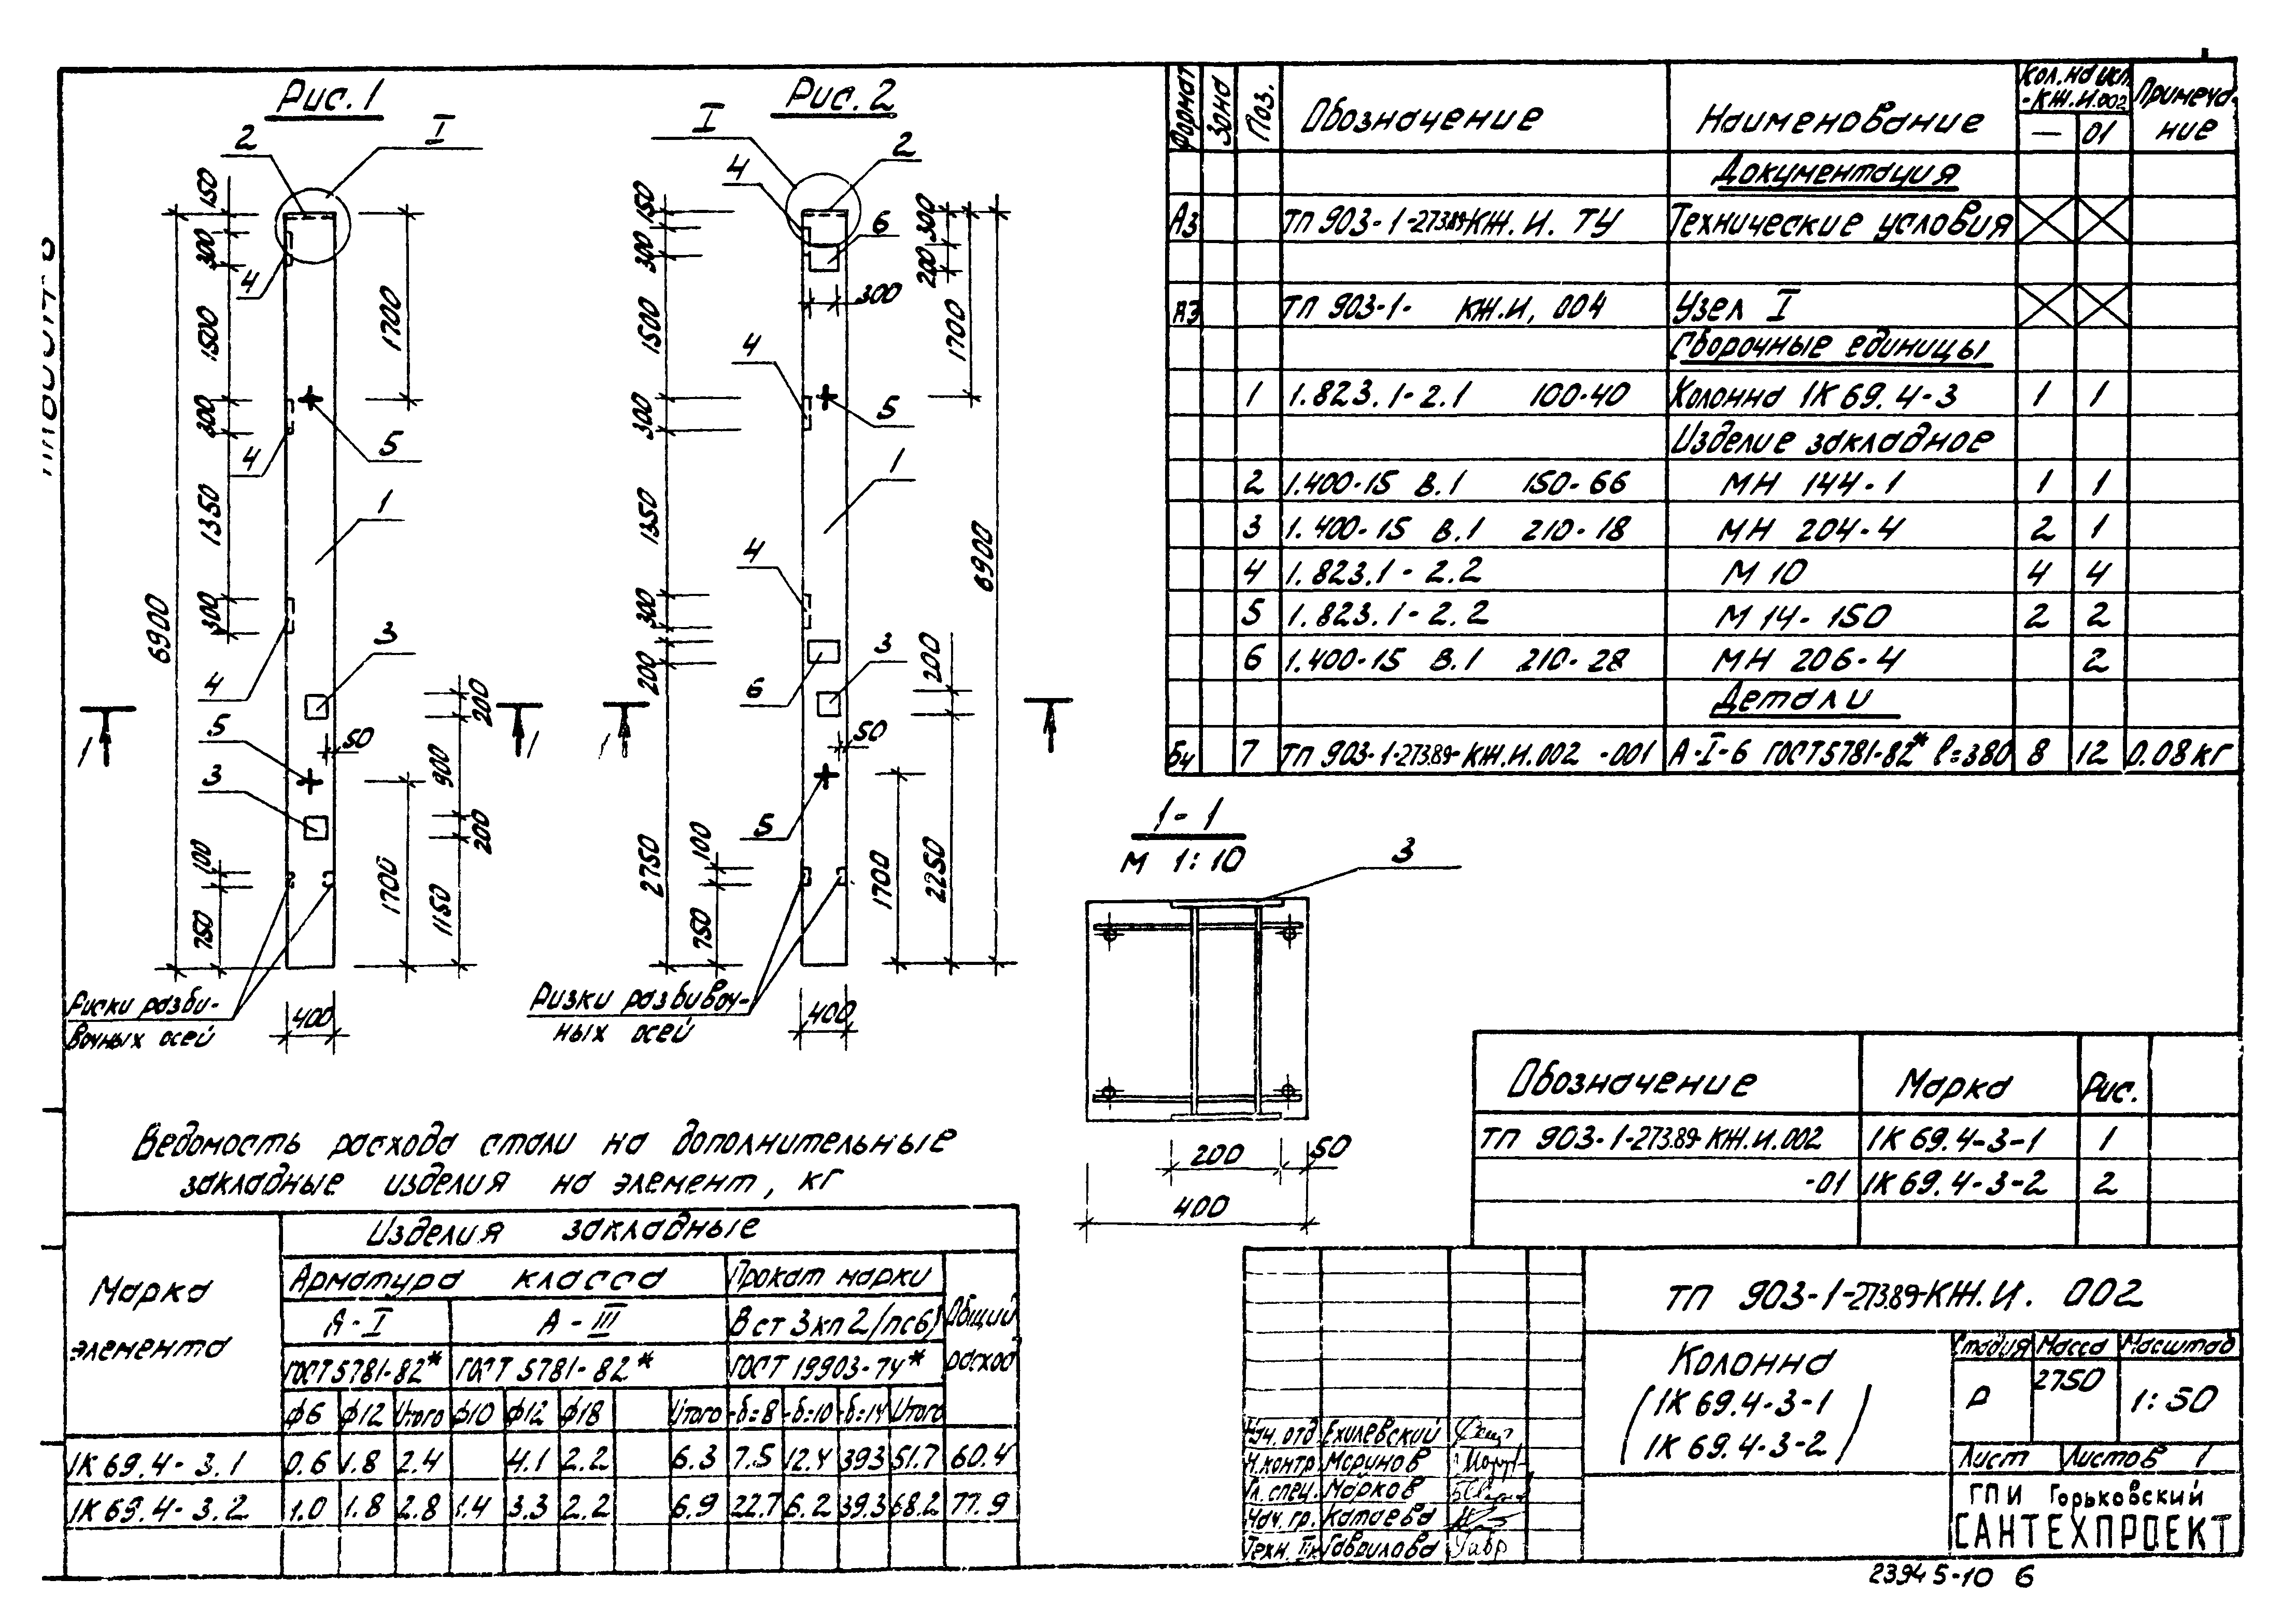 Рис. 1
Рис. 2
I
2
150
300
4
1500
1700
300
4
5
1350
1
6900
300
4
3
200
1
1
5
50
900
3
200
100
1700
750
1150
Риски разби-
вочных осей
400
I
4
2
150
300
6
300
200
300
1500
1700
4
300
5
1
1350
4
6900
300
3
200
200
6
1
50
5
2750
100
1700
2250
750
Ризки разбивоч-
ных осей
400
Формат Зона Поз. Обозначение Наименование Кол. на исп. -КЖ.И.002 Примеча-
ние
— 01
Документация
А3 ТП 903-1-273.89-КЖ.И. ТУ Технические условия
А3 ТП 903-1- КЖ.И, 004 Узел I
Сборочные единицы
1 1.823.1-2.1 100-40 Колонна 1К 69.4-3 1 1
Изделие закладное
2 1.400-15 В.1 150-66 МН 144-1 1 1
3 1.400-15 В.1 210-18 МН 204-4 2 1
4 1.823.1-2.2 М 10 4 4
5 1.823.1-2.2 М 14-150 2 2
6 1.400-15 В.1 210-28 МН 206-4 2
Детали
Бч 7 ТП 903-1-273.89-КЖ.И.002 -001 А-I-6 ГОСТ 5781-82* ℓ=380 8 12 0.08 кг
1-1
М 1:10
3
200
50
400
Обозначение Марка Рис.
ТП 903-1-273.89-КЖ.И.002 1К 69.4-3-1 1
-01 1К 69.4-3-2 2
Ведомость расхода стали на дополнительные
закладные изделия на элемент, кг
Марка
элемента
Изделия закладные
Арматура класса Прокат марки Общий
расход
А-I А-III В ст 3 кп 2/пс6/
ГОСТ 5781-82* ГОСТ 5781-82* ГОСТ 19903-74*
ф6 ф12 Итого ф10 ф12 ф18 Итого -б=8 -б=10 -б=14 Итого
1К 69.4-3.1 0.6 1.8 2.4 4.1 2.2 6.3 7.5 12.4 39.3 51.7 60.4
1К 69.4-3.2 1.0 1.8 2.8 1.4 3.3 2.2 6.9 22.7 6.2 39.3 68.2 77.9
ТП 903-1-273.89-КЖ.И. 002
Колонна
(1К 69.4-3-1
1К 69.4-3-2)
Стадия Масса Масштаб
Р 2750 1:50
Лист Листов 1
ГПИ Горьковский
САНТЕХПРОЕКТ
Нач. отд Ехилевский
Н.контр Маринов
Гл. спец. Марков
Нач. гр. Катаева
Техн. Гаврилова
23945-10 6